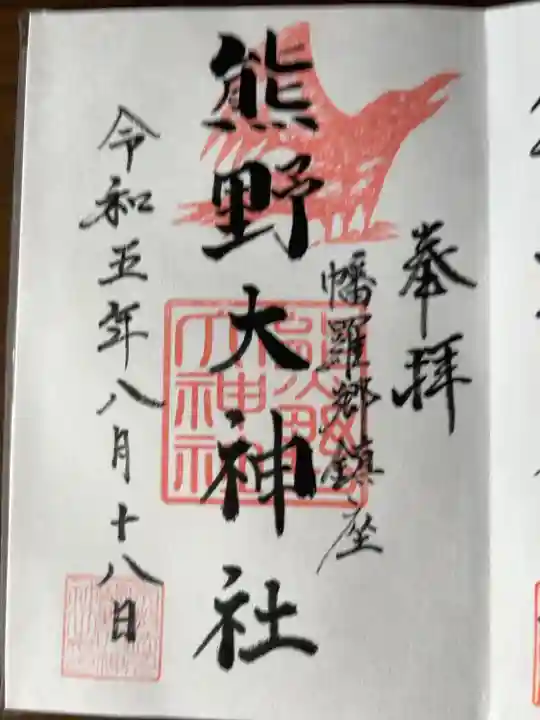 奉拝
幡羅郷鎮座
熊野大神社
令和五年八月十八日
熊野
大神社